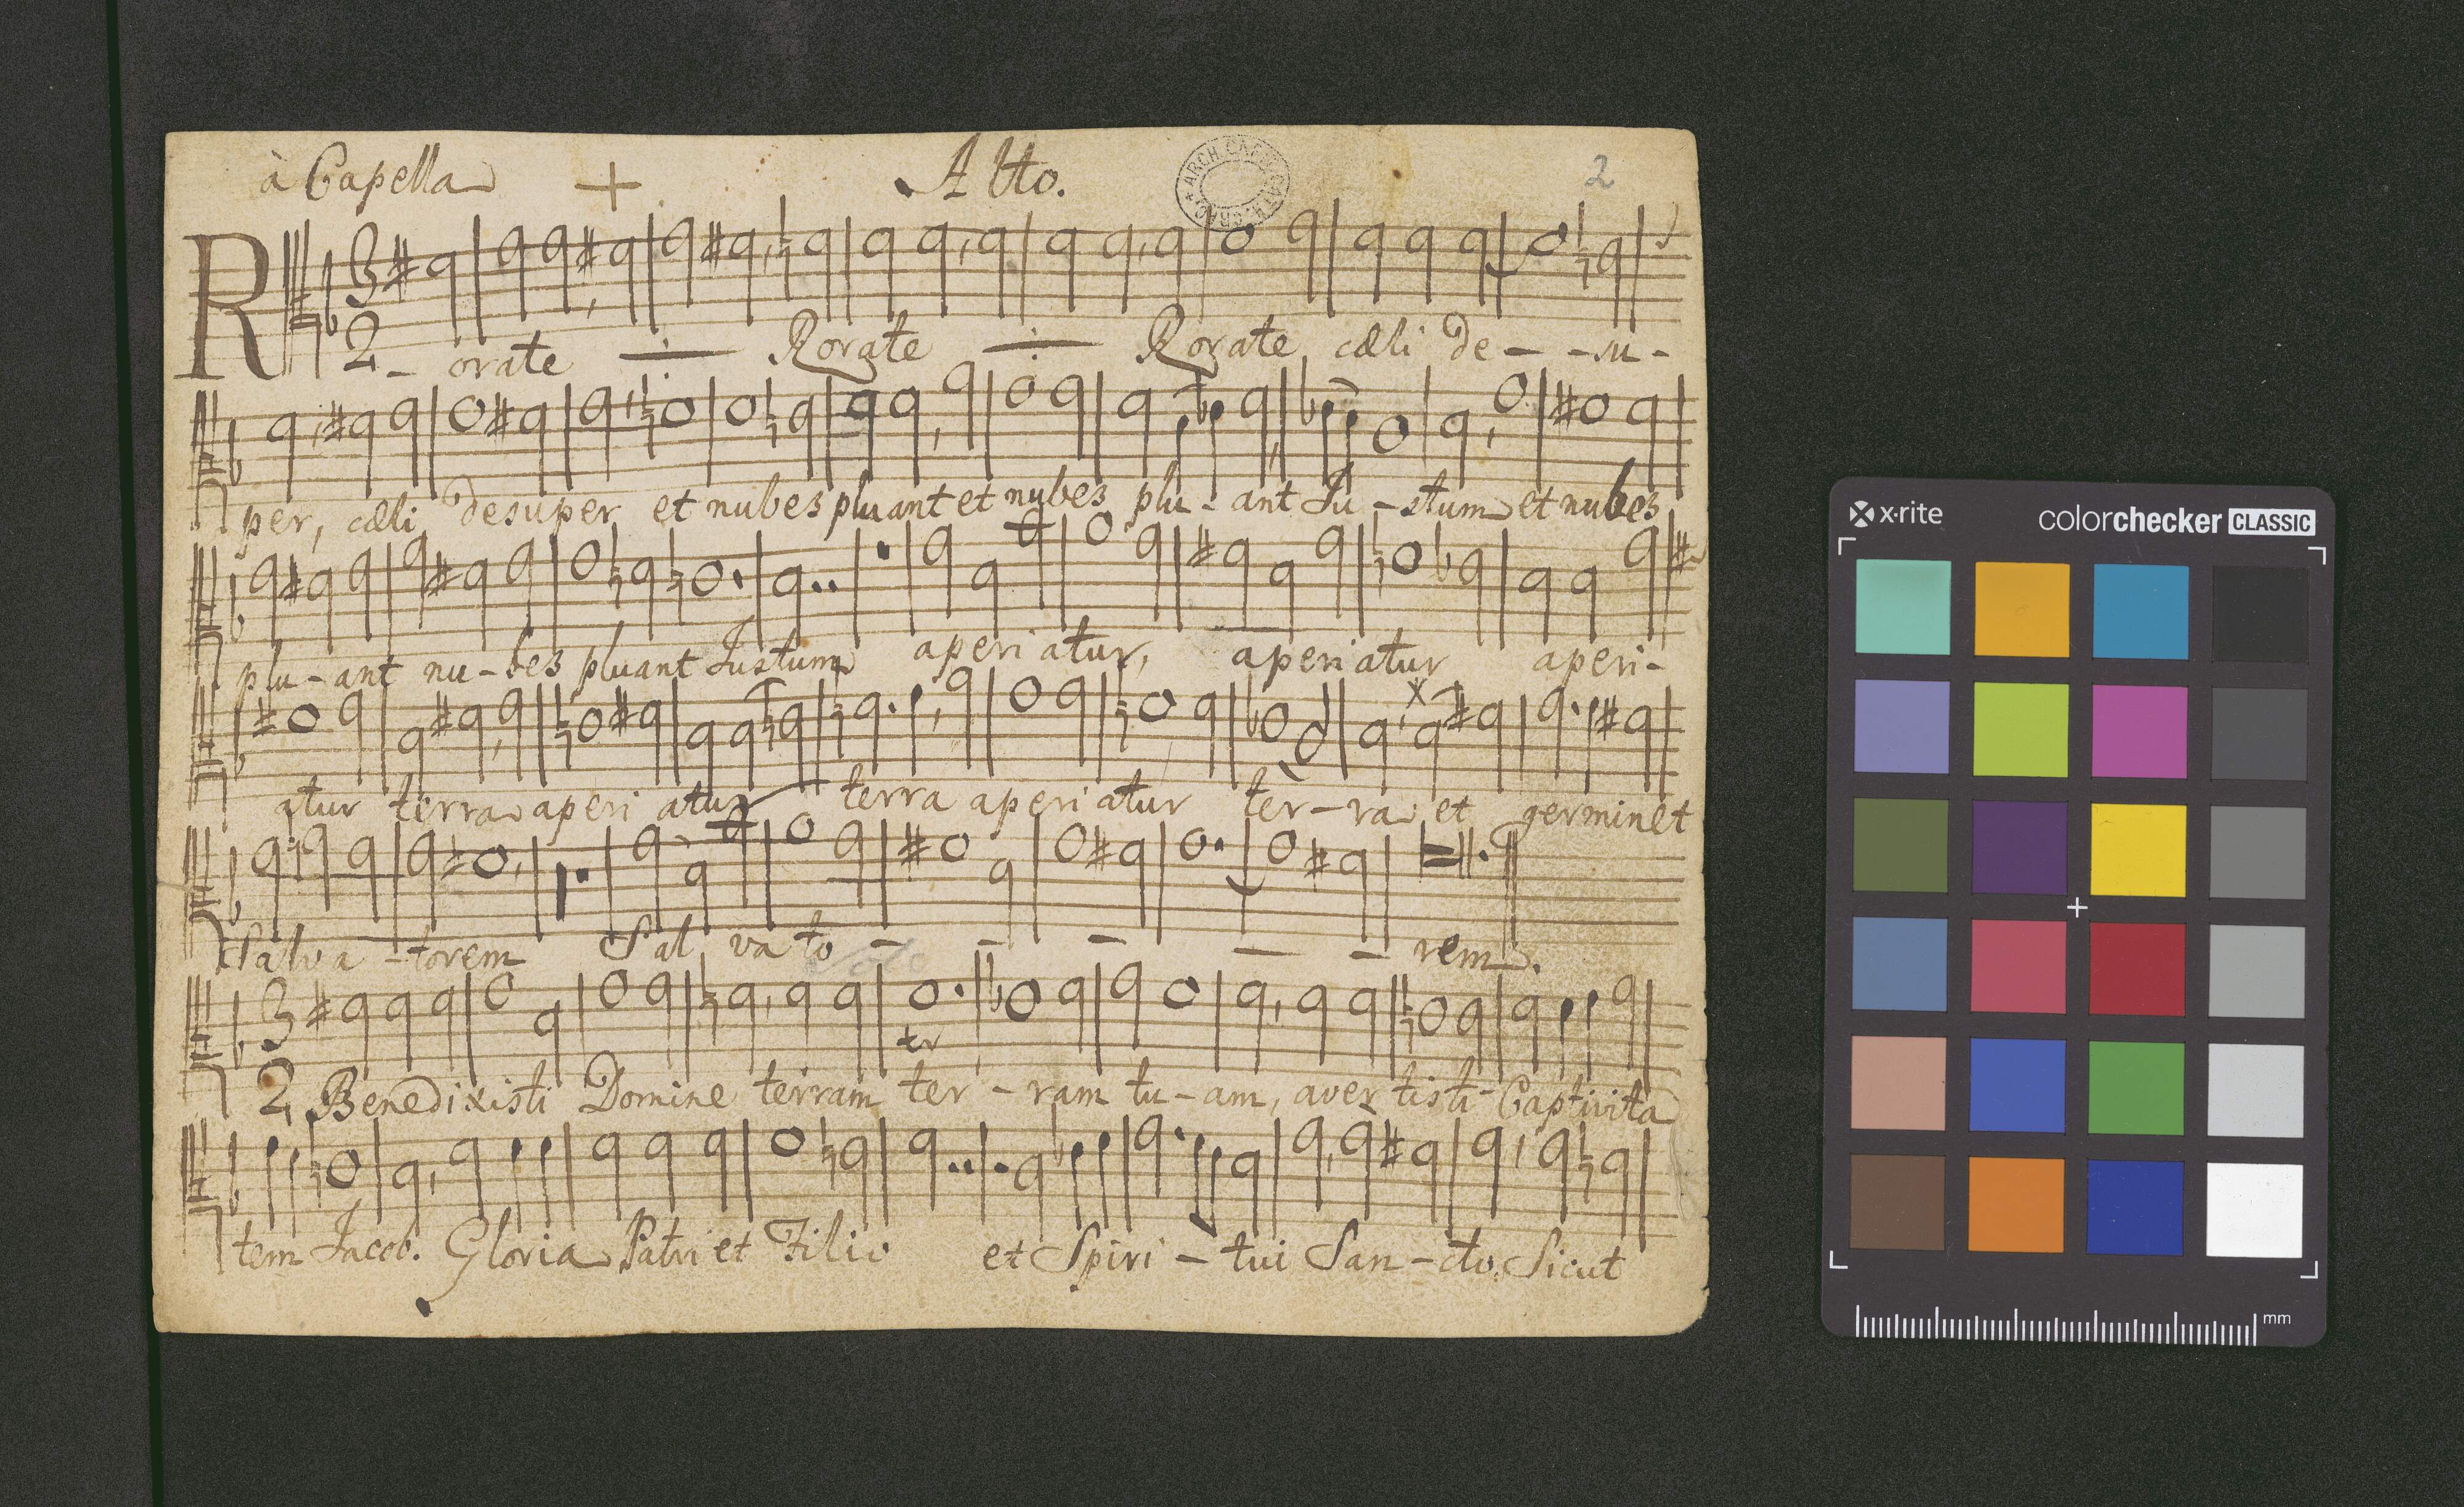 à Capella + Alto. 2
ARCH. CAP
3 2
R - orate ÷ Rorate ÷ Rorate cæli de - - su -
per, cæli desuper et nubes pluant et nubes plu - ant Ju - stum et nubes
plu - ant nu - bes pluant Justum aperiatur, aperiatur aperi -
atur terra aperiatur terra aperiatur ter - ra et germinet
Salva - torem Salvato - - - - - rem.
tr
3 2 Benedixisti Domine terram ter - ram tu - am, avertisti Captivita
tem Jacob. Gloria Patri et Filio et Spiri - tui San - cto, Sicut
x·rite
colorchecker CLASSIC
mm